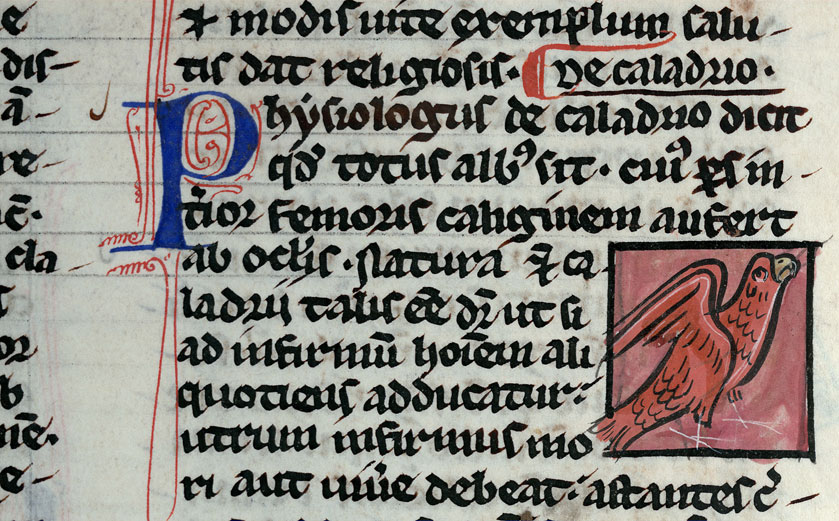 e
dis-
ā-
re-
cla
or
b
e-
⁊ modis uite exemplum salu-
tis dat religiosis. De caladrio.
Physiologus de caladrio dicit
qd̕ totus albꝰ sit. cuiꝰ ps in-
t̕ior femoris caliginem aufert
ab oclis. Natura ca-
ladrii talis eē dr̄ ut si
ad infirmū hoīem ali
quotiens adducatur.
utrum infirmus mo
ri aut uiu̕e debeat. astantes